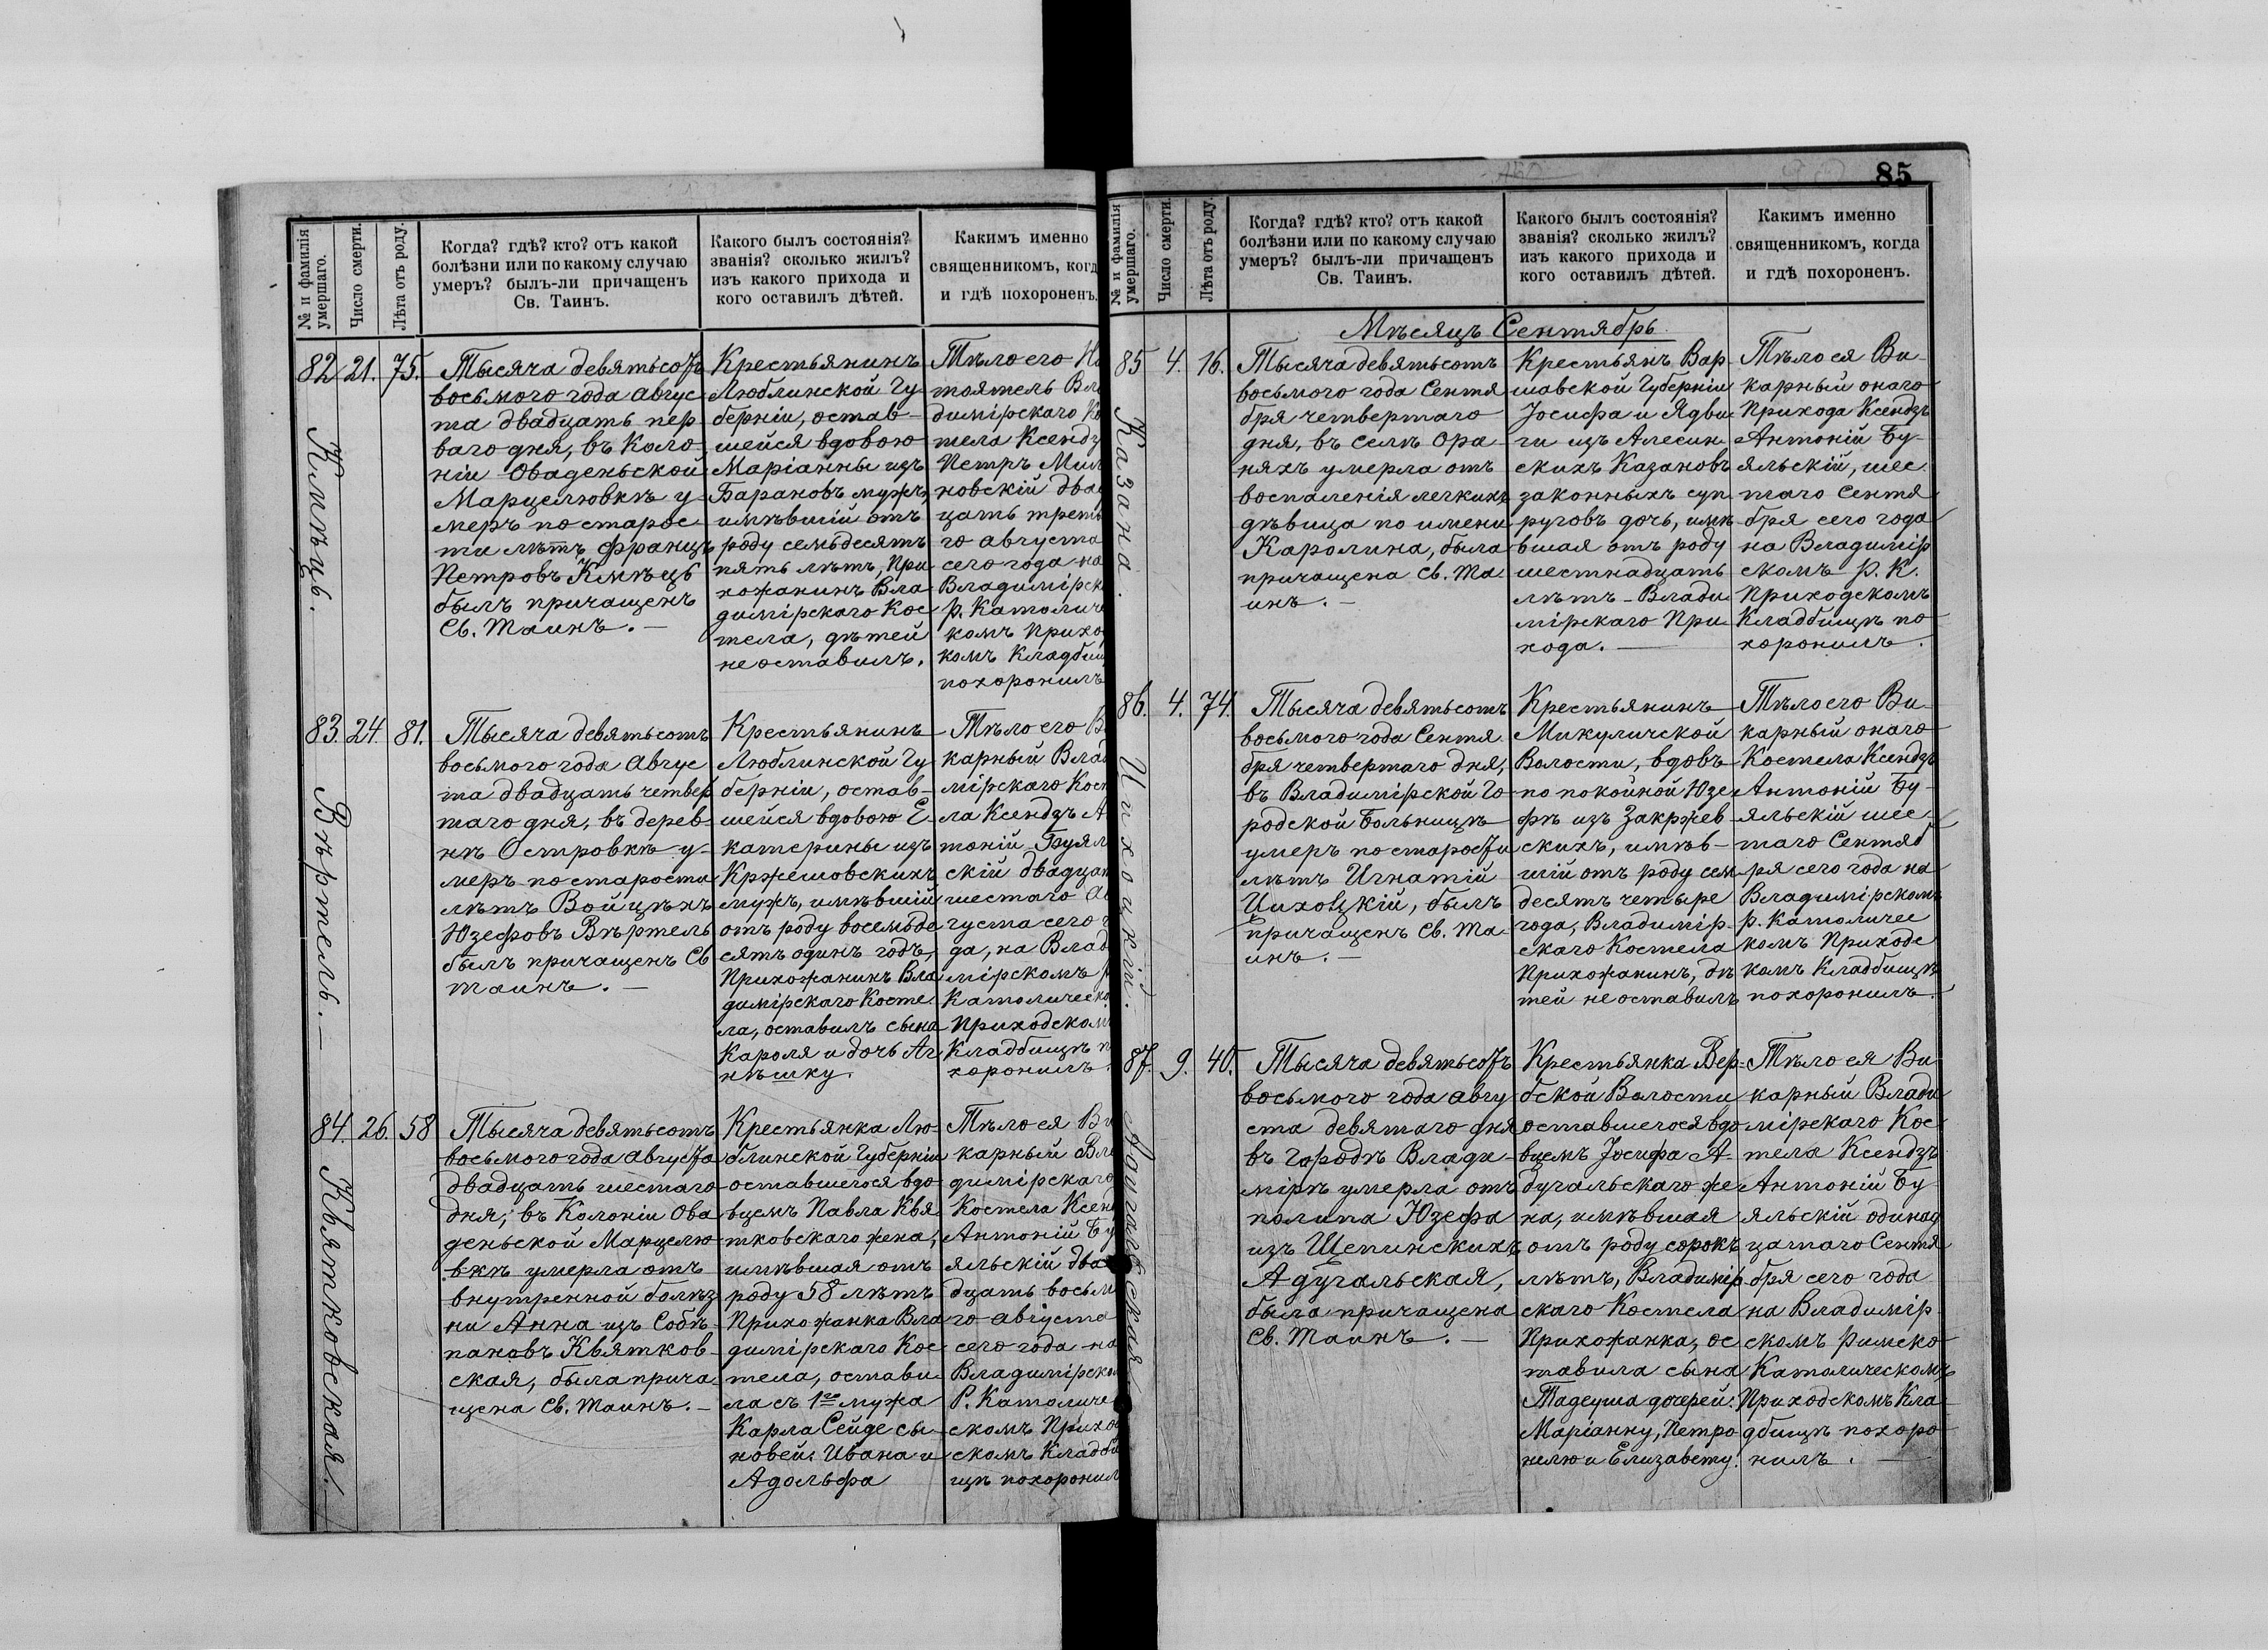 85
№ и фамилія умершаго.
Число смерти.
Лѣта отъ роду.
Когда? гдѣ? кто? отъ какой
болѣзни или по какому случаю
умеръ? былъ-ли причащенъ
Св. Таинъ.
Какого былъ состоянія?
званія? сколько жилъ?
изъ какого прихода и
кого оставилъ дѣтей.
Какимъ именно
священникомъ, когд
и гдѣ похороненъ.
82
Кмѣць.
21.
75.
Тысяча девятьсотъ
восьмого года Авгус
та двадцать пер
ваго дня, въ Коло-
ніи Оваденьской
Марцелювкѣ у-
меръ по старос
ти лѣтъ Францъ
Петровъ Кмѣць
былъ причащенъ
Св. Таинъ. —
Крестьянинъ
Люблинской Гу
берніи, остав-
шейся вдовою
Маріанны изъ
Барановъ мужъ,
имѣвшій отъ
роду семьдесятъ
пять лѣтъ, При
хожанинъ Вла
димірскаго Кос
тела, дѣтей
не оставилъ.
Тѣло его На
тоятель Вла
димірскаго Ко
тела Ксендзъ
Петръ Мил
новскій два
цать треть
го августа
сего года на
Владимірск
Р. Католиче
комъ Прихо
комъ Кладбищ
похоронилъ
83.
Вѣртель. —
24
81.
Тысяча девятьсотъ
восьмого года Авгус
та двадцать четвер
таго дня, въ дерев-
нѣ Островкѣ у-
меръ по старости
лѣтъ Войцѣхъ
Юзефовъ Вѣртель
былъ причащенъ Св
Таинъ. —
Крестьянинъ
Люблинской Гу
берніи, остав-
шейся вдовою Е-
катерины изъ
Кржешовскихъ
мужъ, имѣвшій
отъ роду восемьде
сятъ одинъ годъ,
Прихожанинъ Вла
димірскаго Косте
ла, оставилъ сына
Кароля и дочь Аг
нѣшку.
Тѣло его В
карный Влад
мірскаго Кост
ла Ксендзъ А
тоній Буял
скій двадцат
шестаго Ав
густа сего г
да, на Влад
мірскомъ Р
Католическо
Приходском
Кладбищѣ п
хоронилъ.
84.
Квятковская.
26.
58
Тысяча девятьсотъ
восьмого года Августа
двадцать шестаго
дня, въ Колоніи Ова
деньской Марцелю
вкѣ умерла отъ
внутренной болѣз
ни Анна изъ Собѣ-
пановъ Квятков-
ская, была прича
щена Св. Таинъ. —
Крестьянка Лю-
блинской Губерніи
оставшегося вдо
вцемъ Павла Квя
тковскаго жена,
имѣвшая отъ
роду 58 лѣтъ
Прихожанка Вла
димірскаго Кос
тела, остави
ла съ 1го мужа
Карла Сейде сы-
новей: Ивана и
Адольфа
Тѣло ея Ви
карный Вла
димірскаго
Костела Ксен
Антоній Бу
яльскій два
дцать восьм
го августа
сего года на
Владимірско
Р. Католиче
скомъ Прихо
скомъ Кладби
щѣ похоронил
№ и фамилія умершаго.
Число смерти.
Лѣта отъ роду.
Когда? гдѣ? кто? отъ какой
болѣзни или по какому случаю
умеръ? былъ-ли причащенъ
Св. Таинъ.
Какого былъ состоянія?
званія? сколько жилъ?
изъ какого прихода и
кого оставилъ дѣтей.
Какимъ именно
священникомъ, когда
и гдѣ похороненъ.
Мѣсяцъ Сентябрь.
85
Казана.
4.
16.
Тысяча девятьсотъ
восьмого года Сентя
бря четвертаго
дня, въ селѣ Ора-
няхъ умерла отъ
воспаленія легкихъ
дѣвица по имени
Каролина, была
причащена Св. Та
инъ. —
Крестьянъ Вар-
шавской Губерніи
Іосифа и Ядви
ги изъ Алесин
скихъ Казановъ
законныхъ суп
руговъ дочь, имѣ
вшая отъ роду
шестнадцать
лѣтъ — Влади
мірскаго При
хода. —
Тѣло ея Ви-
карный онаго
Прихода Ксендзъ
Антоній Бу-
яльскій, шес
таго Сентя
бря сего года
на Владимір
скомъ Р. К.
Приходскомъ
Кладбищѣ по
хоронилъ.
86.
Цихоцкій.
4.
74.
Тысяча девятьсотъ
восьмого года Сентя
бря четвертаго дня,
въ Владимірской Го
родской Больницѣ
умеръ по старости
лѣтъ Игнатій
Цихоцкій, былъ
причащенъ Св. Та-
инъ. —
Крестьянинъ
Микуличской
Волости, вдовъ
по покойной Юзе
фѣ изъ Закржев
скихъ, имѣв-
шій отъ роду сем
десятъ четыре
года, Владимір-
скаго Костела
Прихожанинъ, дѣ
тей не оставилъ
Тѣло его Ви
карный онаго
Костела Ксендзъ
Антоній Бу-
яльскій шес
таго Сентяб
ря сего года на
Владимірскомъ
Р. Католичес
комъ Приходс
комъ Кладбищѣ
похоронилъ.
87.
Адугальская
9.
40.
Тысяча девятьсотъ
восьмого года Авгу
ста девятаго дня
въ Городѣ Влади-
мірѣ умерла отъ
полипа Юзефа
изъ Щепинскихъ
Адугальская,
была причащена
Св. Таинъ. —
Крестьянка Вер-
бской Волости
оставшегося вдо
вцемъ Іосифа А-
дугальскаго же
на, имѣвшая
отъ роду сорокъ
лѣтъ, Владимір
скаго Костела
Прихожанка, ос
тавила сына
Тадеуша дочерей:
Маріанну, Петро
нелю и Елизавету.
Тѣло ея Ви
карный Влади
мірскаго Кос
тела Ксендзъ
Антоній Бу
яльскій одинад
цатаго Сентя
бря сего года
на Владимір-
скомъ Римско
Католическомъ
Приходскомъ Кла
дбищѣ похоро
нилъ. —